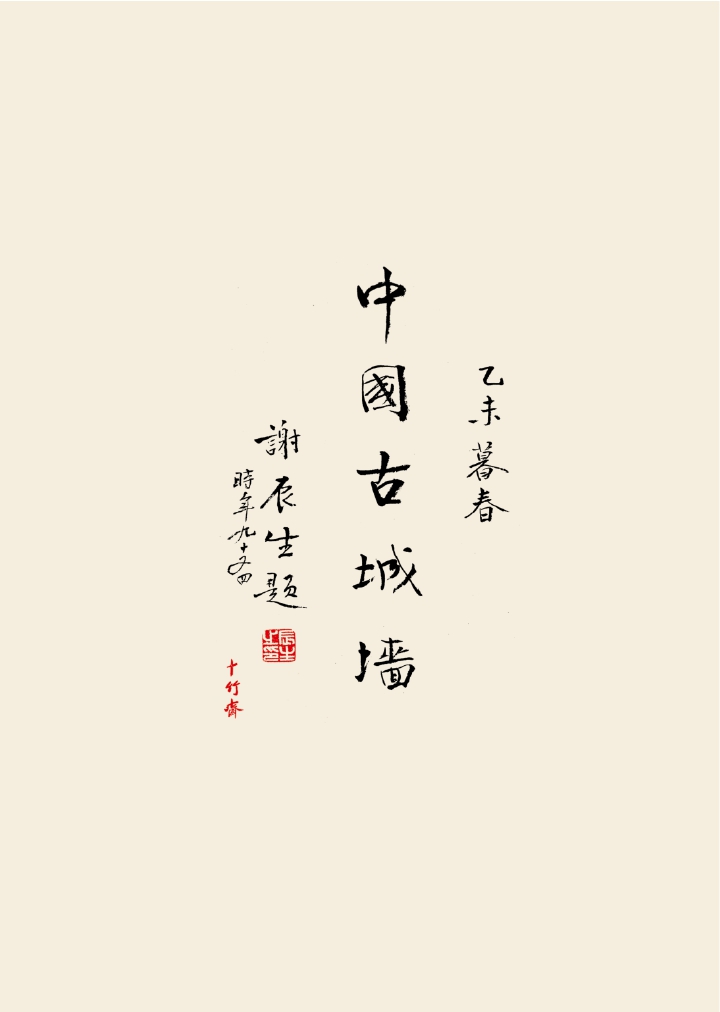 乙未暮春
中國古城墙
謝辰生題
時年九十又四
辰生之印
十竹齋